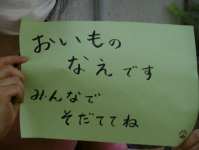 おいもの
なえです
みんなで
そだててね